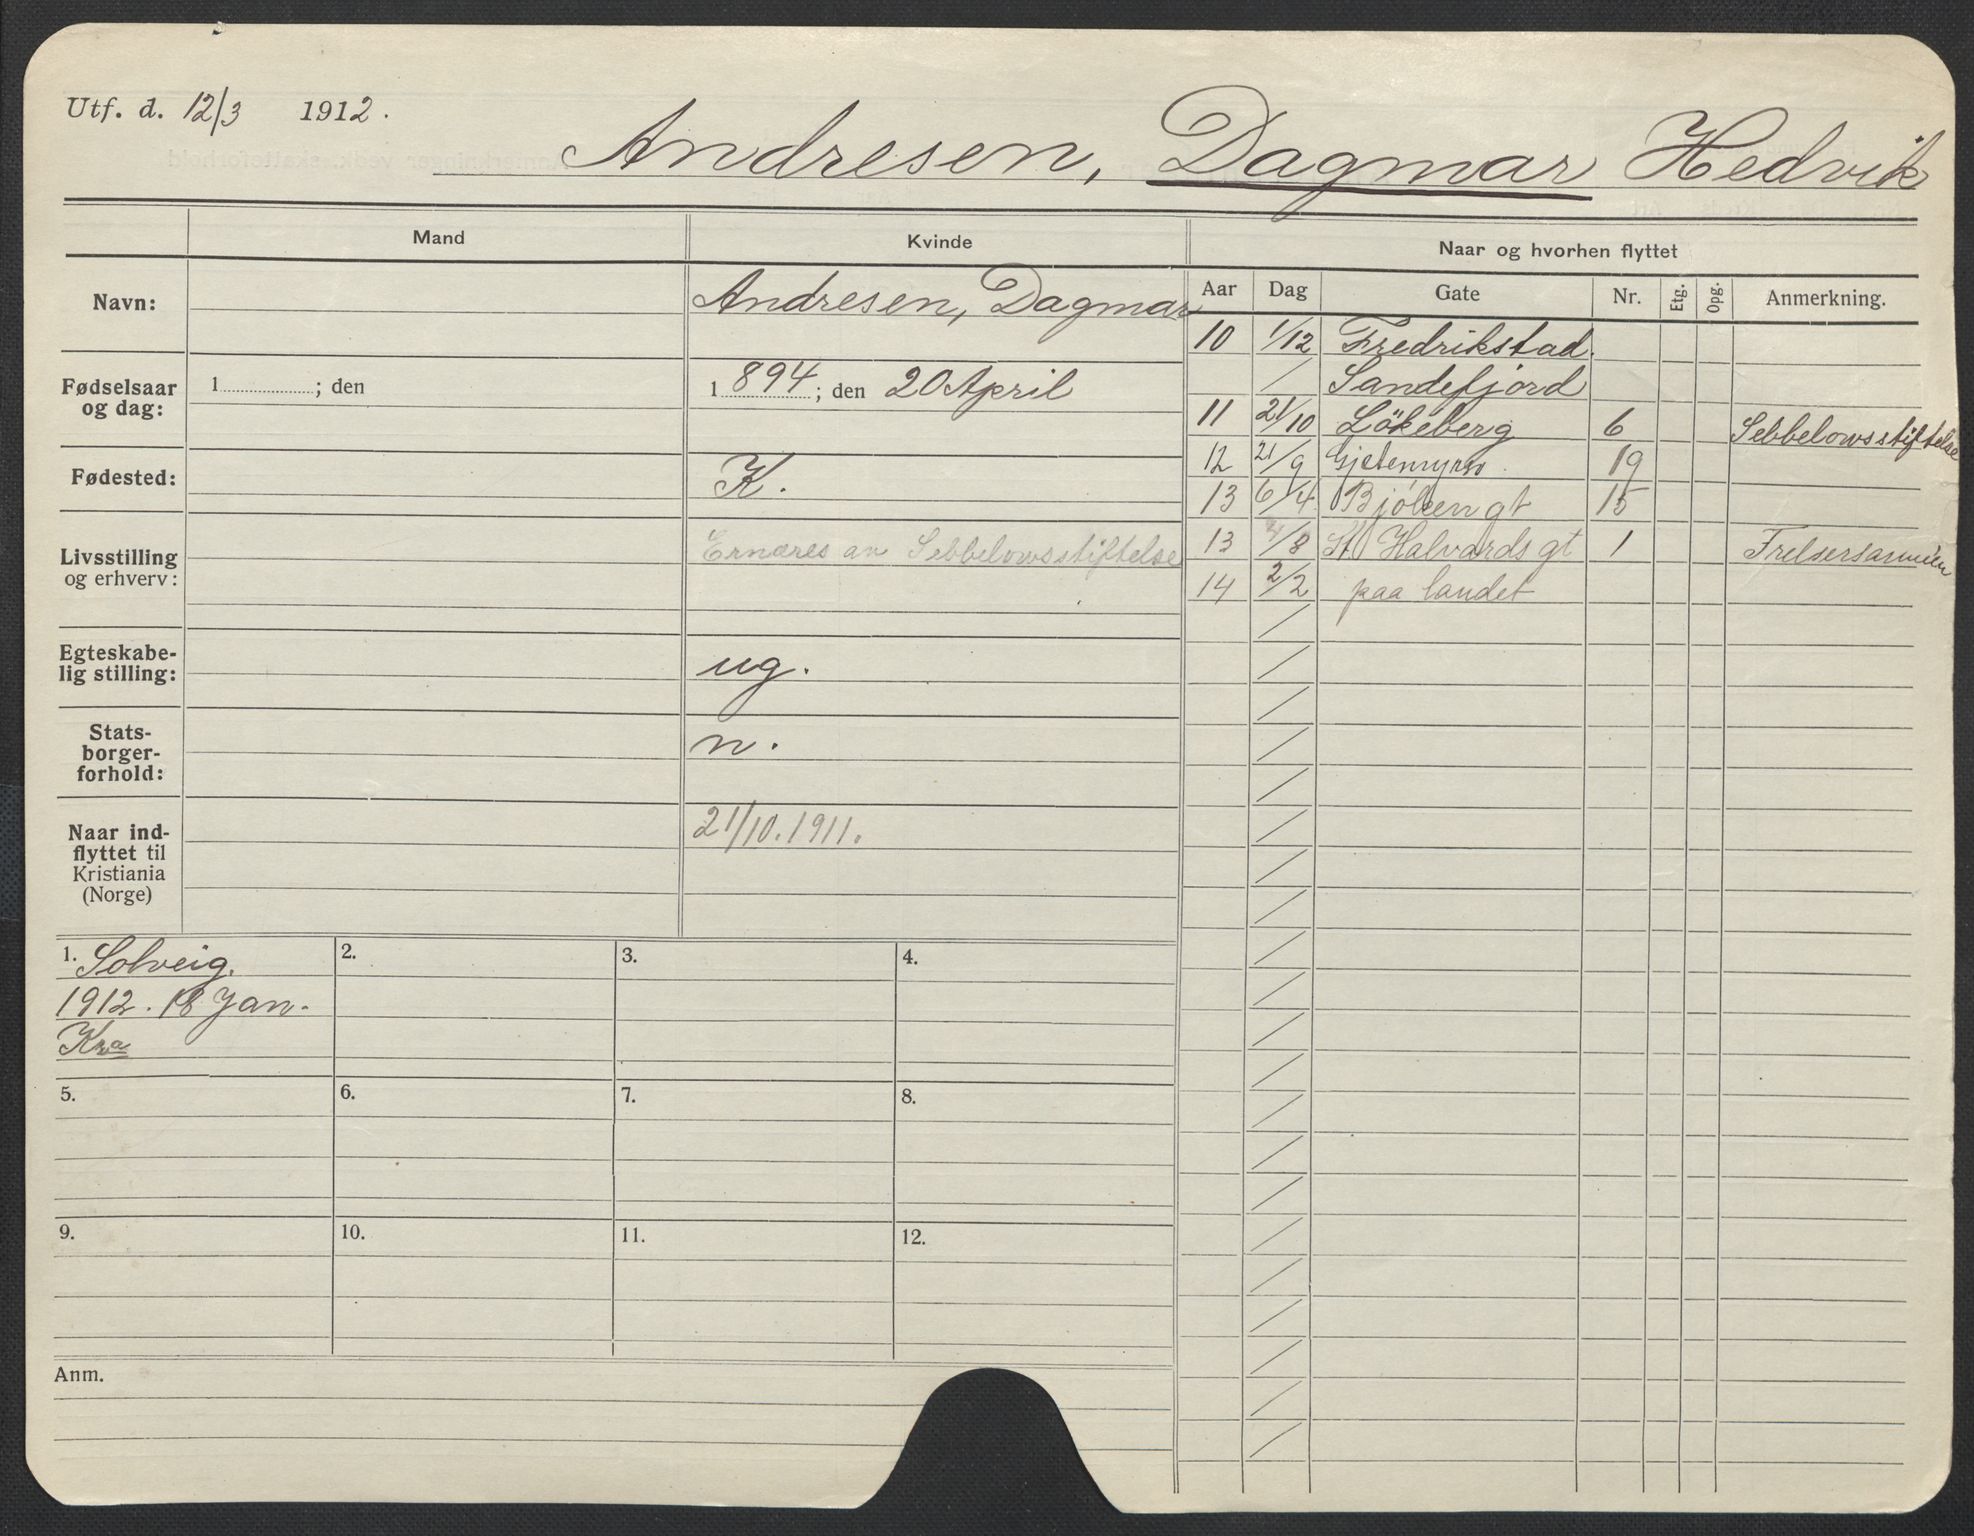 Utf. d. 12/3 1912.
Andresen, Dagmar Hedvik
Mand
Kvinde
Naar og hvorhen flyttet
Navn:
Andresen, Dagmar
Aar Dag Gate Nr. Etg. Opg. Anmerkning.
10 1/12 Fredrikstad.
/ Sandefjord
11 21/10 Lökeberg 6 Sebbelowsstiftelse
12 21/9 Gjetemyrsv. 19
13 6/4 15
13 /8 St Halvards gt 1 Frelsersarmeen
14 2/2 paa landet
Fødselsaar
og dag:
1 ; den
1 894 ; den 20 April
Fødested:
K.
Livsstilling
og erhverv:
Ernæres av Sebbelowsstiftelse
Egteskabe-
lig stilling:
ug.
Stats-
borger-
forhold:
n.
Naar ind-
flyttet til
Kristiania
(Norge)
21/10.1911.
1. Solveig.
1912. 18 Jan.
Kra
2.
3.
4.
5.
6.
7.
8.
9.
10.
11.
12.
Anm.